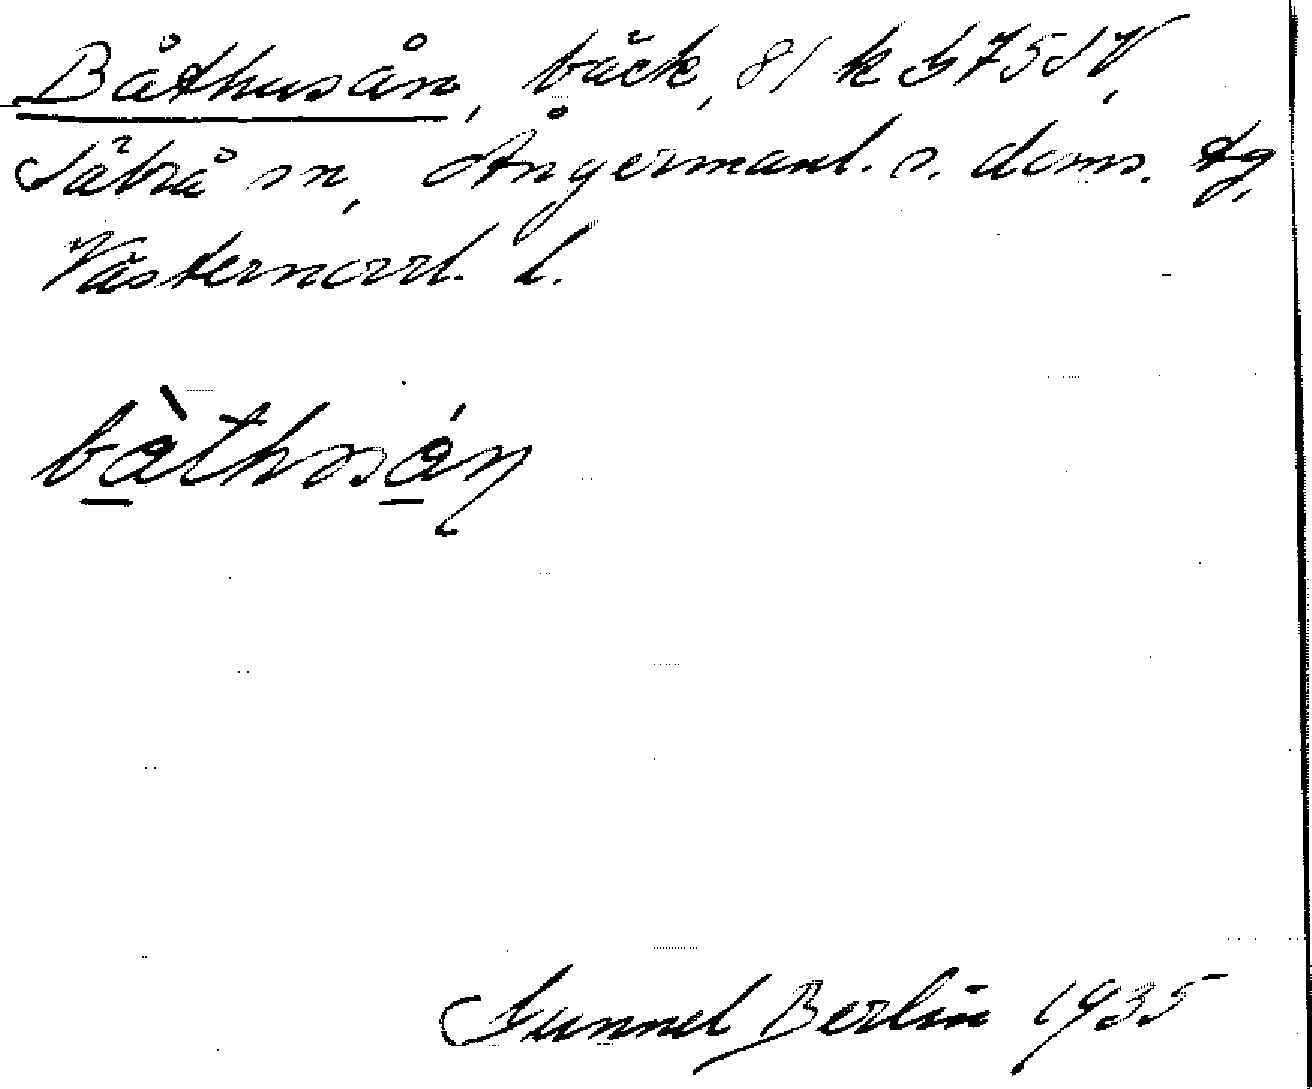 Båthusån, bäck, 81 k G 75 SV,
Säbrå sn, Ångermanl. s. doms. tg,
Västernorrl. l.
bàthusán
Gunnel Berlin 1935